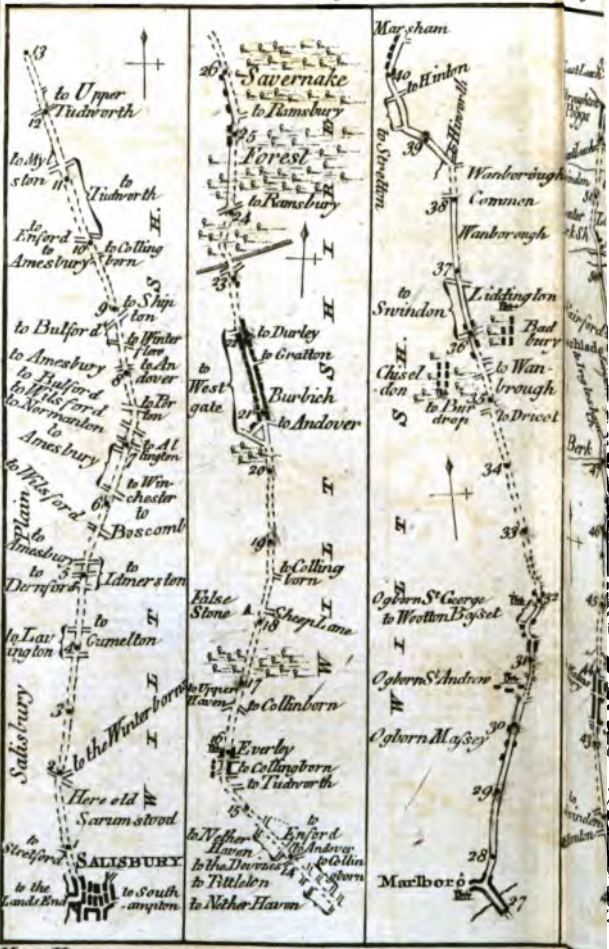 13
to Upper
Tudworth
12
to Myl
ston
11
to
Tudworth
to
Enford
to
Amesbury
10
to Colling
born
9
to Ship
ton
to Bulford
to Winter
slow
to Amesbury
8
to An
dover
to Bulford
to Wilsford
to Normanton
to Por
ton
to
Amesbury
to Al
lington
to Wilsford
to Win
chester
6
to
Boscomb
Plain
to
Amesbury
to
Dernford
5
to
Idmerston
to Lav
ington
4
to
Gumelton
3
Salisbury
to the Winterborns
2
Here old
Sarum stood
to
Stretford
1
SALISBURY
to the
Lands End
to South
ampton
WILTSH.
26
Savernake
to Ramsbury
25
Forest
24
to Ramsbury
23
22
to Durley
to Gratton
to
West
gate
Burbich
21
to Andover
20
19
to Colling
born
False
Stone
Sheep Lane
18
17
to Upper
Haven
to Collinborn
16
Everley
to Collingborn
to Tudworth
15
to Nether
Haven
to
Enford
to Andover
to the Devizes
14
to Collin
gborn
to Pittleton
to Nether Haven
WILTSHIRE
Marsham
40
to Hinton
to Stretton
39
to Hiworth
Wanborough
38
Common
Wanborough
37
to
Swindon
Liddington
36
Bad
bury
Chisel
don
to Wan
brough
35
to Bur
drop
to Dricot
34
33
32
Ogborn St George
to Wootton Basset
31
Ogborn St Andrew
30
Ogborn Massey
29
28
Marlboro
27
WILTSH.
Berk
47
46
45
44
43